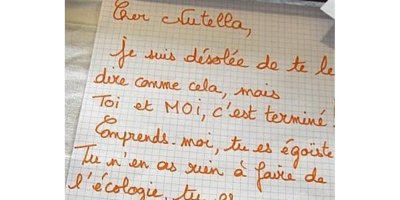 Cher Nutella,
je suis désolée de te le
dire comme cela, mais
Toi et MOI, c'est terminé !
Comprends-moi, tu es égoïste
Tu n'en as rien à faire de
l'écologie, tu as